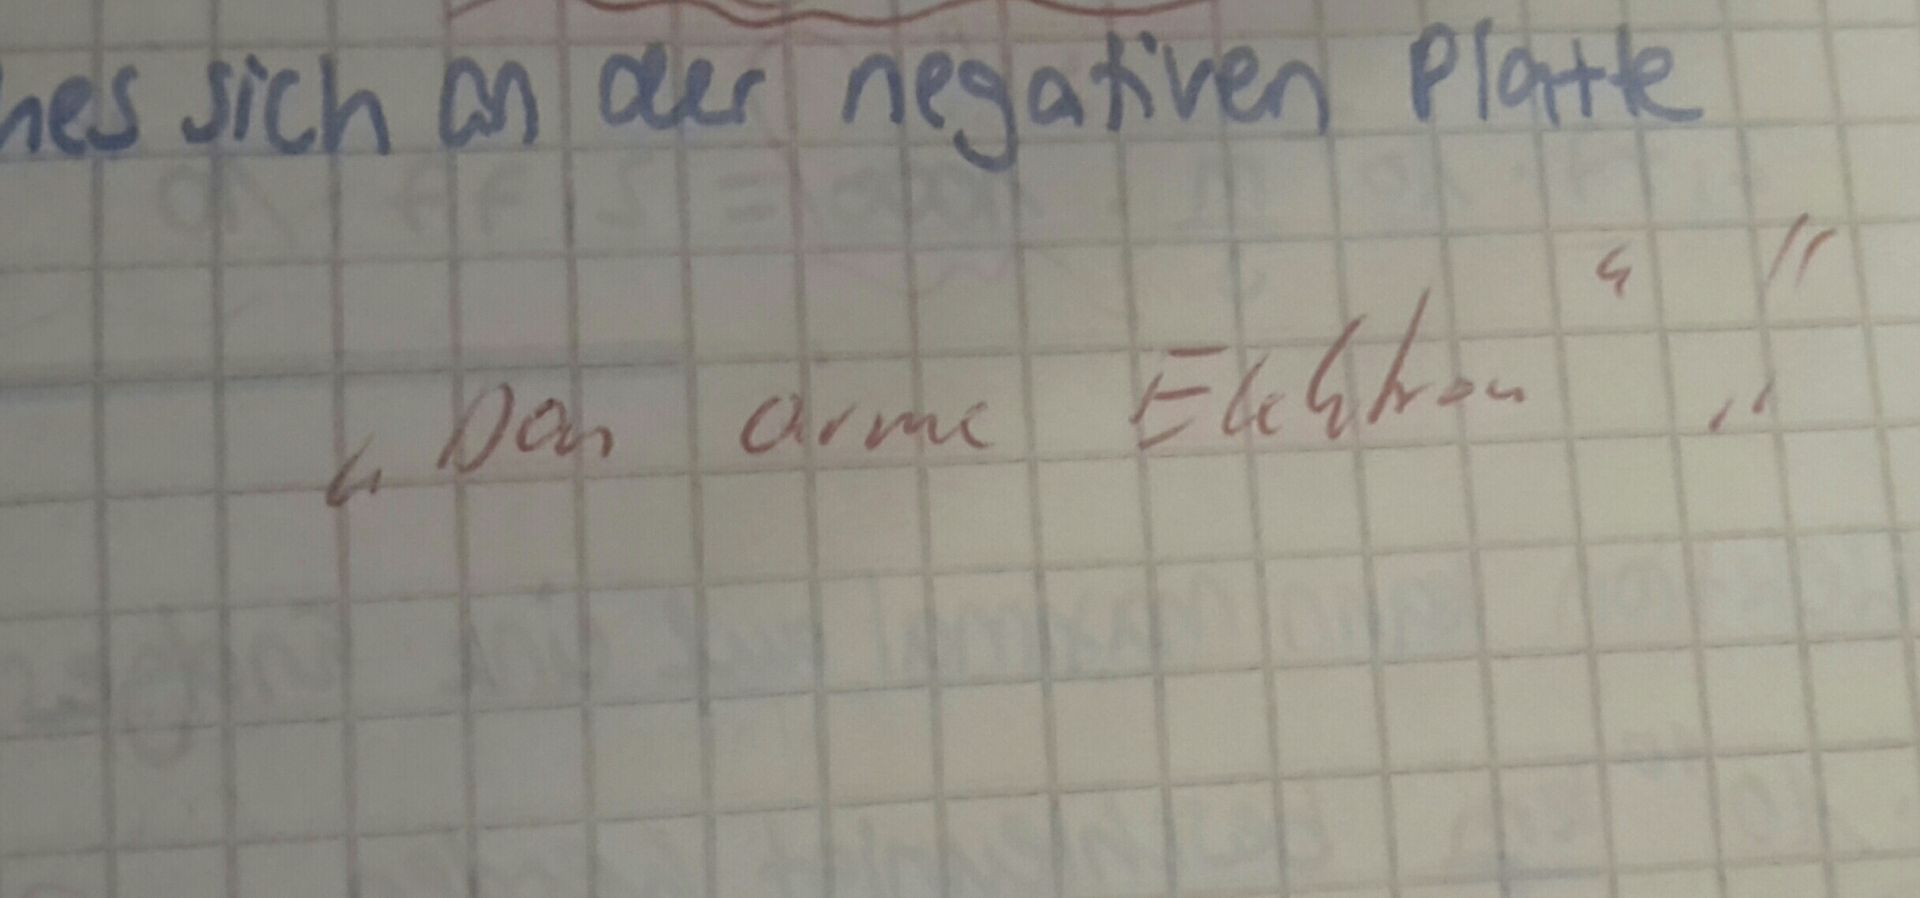 hes sich an der negativen Platte
„Das arme Elektron“ „“